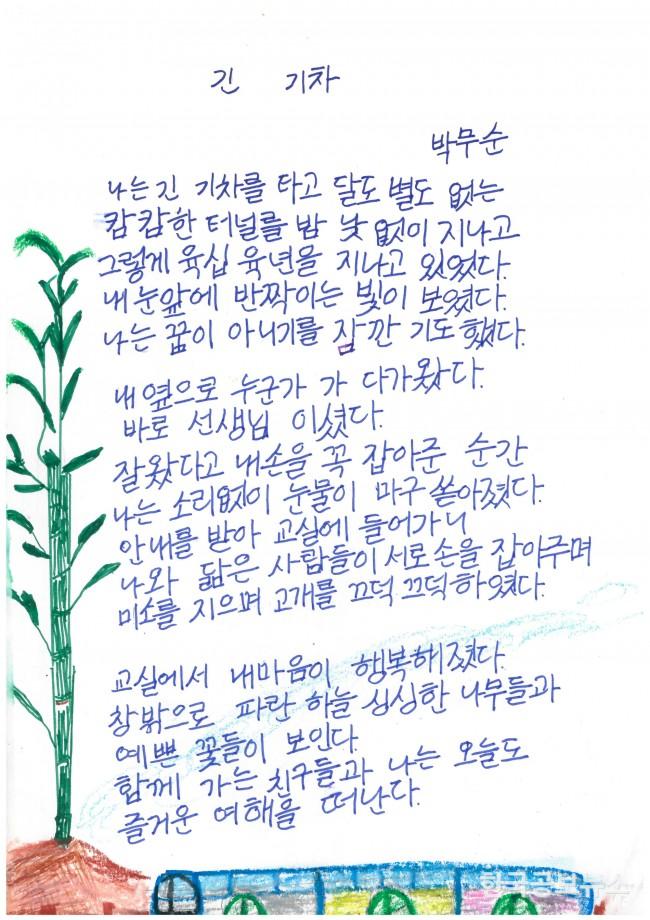 긴 기차
박무순
나는 긴 기차를 타고 달도 별도 없는
캄캄한 터널를 밤 낮 없이 지나고
그렇게 육십 육년을 지나고 있었다.
내 눈앞에 반짝이는 빛이 보였다.
나는 꿈이 아니기를 잠깐 기도 했다.
내 옆으로 누군가 가 다가왔다.
바로 선생님 이셨다.
잘왔다고 내손을 꼭 잡아준 순간
나는 소리없이 눈물이 마구 쏟아졌다.
안내를 받아 교실에 들어가니
나와 닮은 사람들이 서로손을 잡아주며
미소를 지으며 고개를 끄덕 끄덕하였다.
교실에서 내마음이 행복해졌다.
창밖으로 파란 하늘 싱싱한 나무들과
예쁜 꽃들이 보인다.
함께 가는 친구들과 나는 오늘도
즐거운 여해을 떠난다.
한국공보뉴스